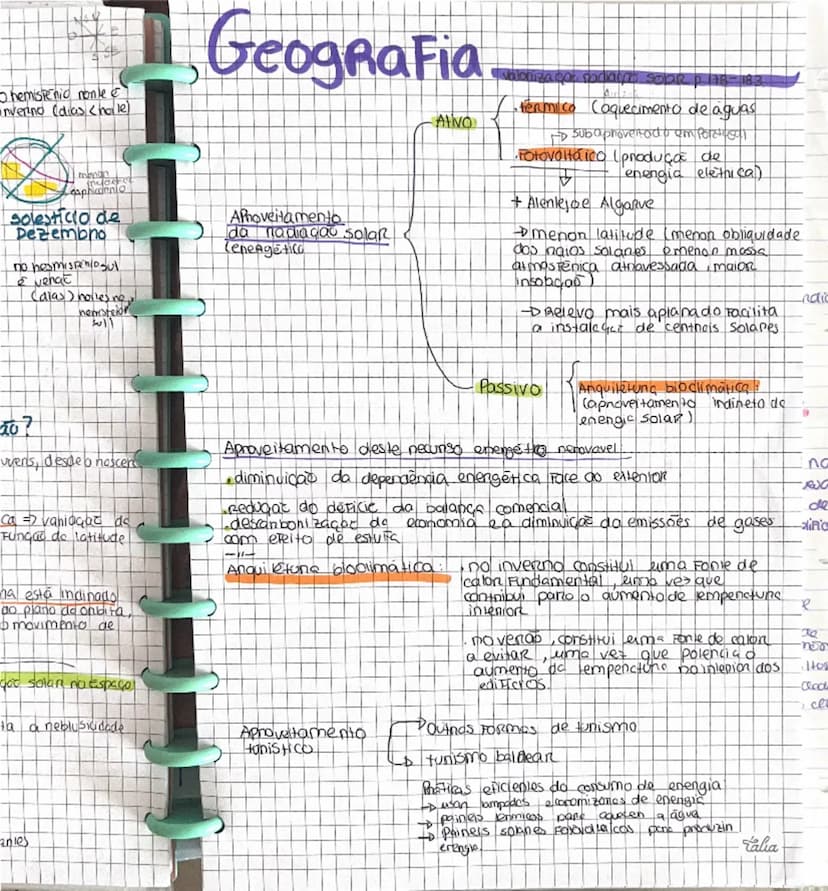 o hemisfério norte é
inverno (dias < noite)
solestício de
Dezembro
no hesmisfério sul
é verão
(dias) noites no
hemisfério
sul)
ão?
vens, desde o nascer
ca => variação da
função da latitude
na está inclinado
ao plano da órbita,
o movimento de
ção solar no espaço
ta a neblusidade
antes
GEOGRAFIA
Valorização radiação solar p.178-183
Ativo
.térmico (aquecimento de águas
→ subaproveitado em Portugal
.Fotovoltáico (produção de
energia elétrica)
+ Alentejo e Algarve
→ menor latitude (menor obliquidade
dos raios solares e menor massa
atmosférica atravessada, maior
insolação)
→ Relevo mais aplanado facilita
a instalação de centrais solares
Aproveitamento
da radiação solar
(energético
Passivo
Arquitetura bioclimática:
(aproveitamento indireto da
energia solar)
Aproveitamento deste recurso energético renovavel
.diminuição da dependência energética face ao exterior
.redução do déficie da balança comercial
.descarbonização da economia e a diminuição da emissões de gases
com efeito de estufa
-//-
Arquitetura bioclimática:
.no inverno constitui uma fonte de
calor fundamental, uma vez que
contribui para o aumento de temperatura
interior
.no verão, constitui uma fonte de calor
a evitar, uma vez que potencia o
aumento da temperatura no interior dos
edifícios.
Aproveitamento
turístico
Outras formas de turismo
turismo balnear
Práticas eficientes do consumo de energia
→ usar lampadas economizoras de energia
→ paineis térmicos para aquecer a água
→ Paineis solares fotovoltaicos para produzir
energia.
talia